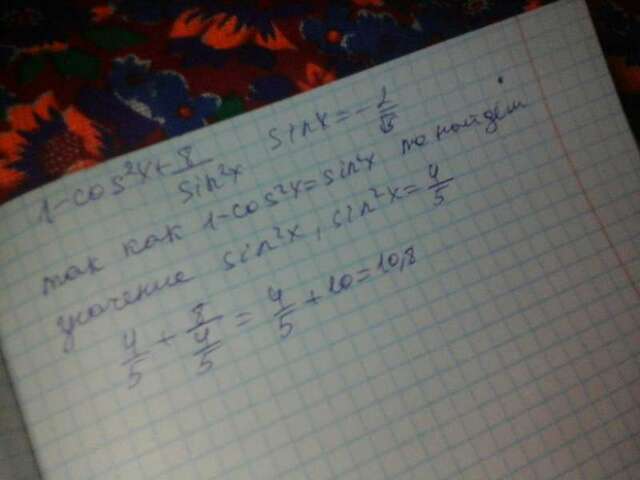 1-cos²x+8/sin²x sinx=-
так как 1-cos²x=sin²x то найдём
значение sin²x, sin²x=4/5
4/5+8/(4/5)=4/5+10=10,8